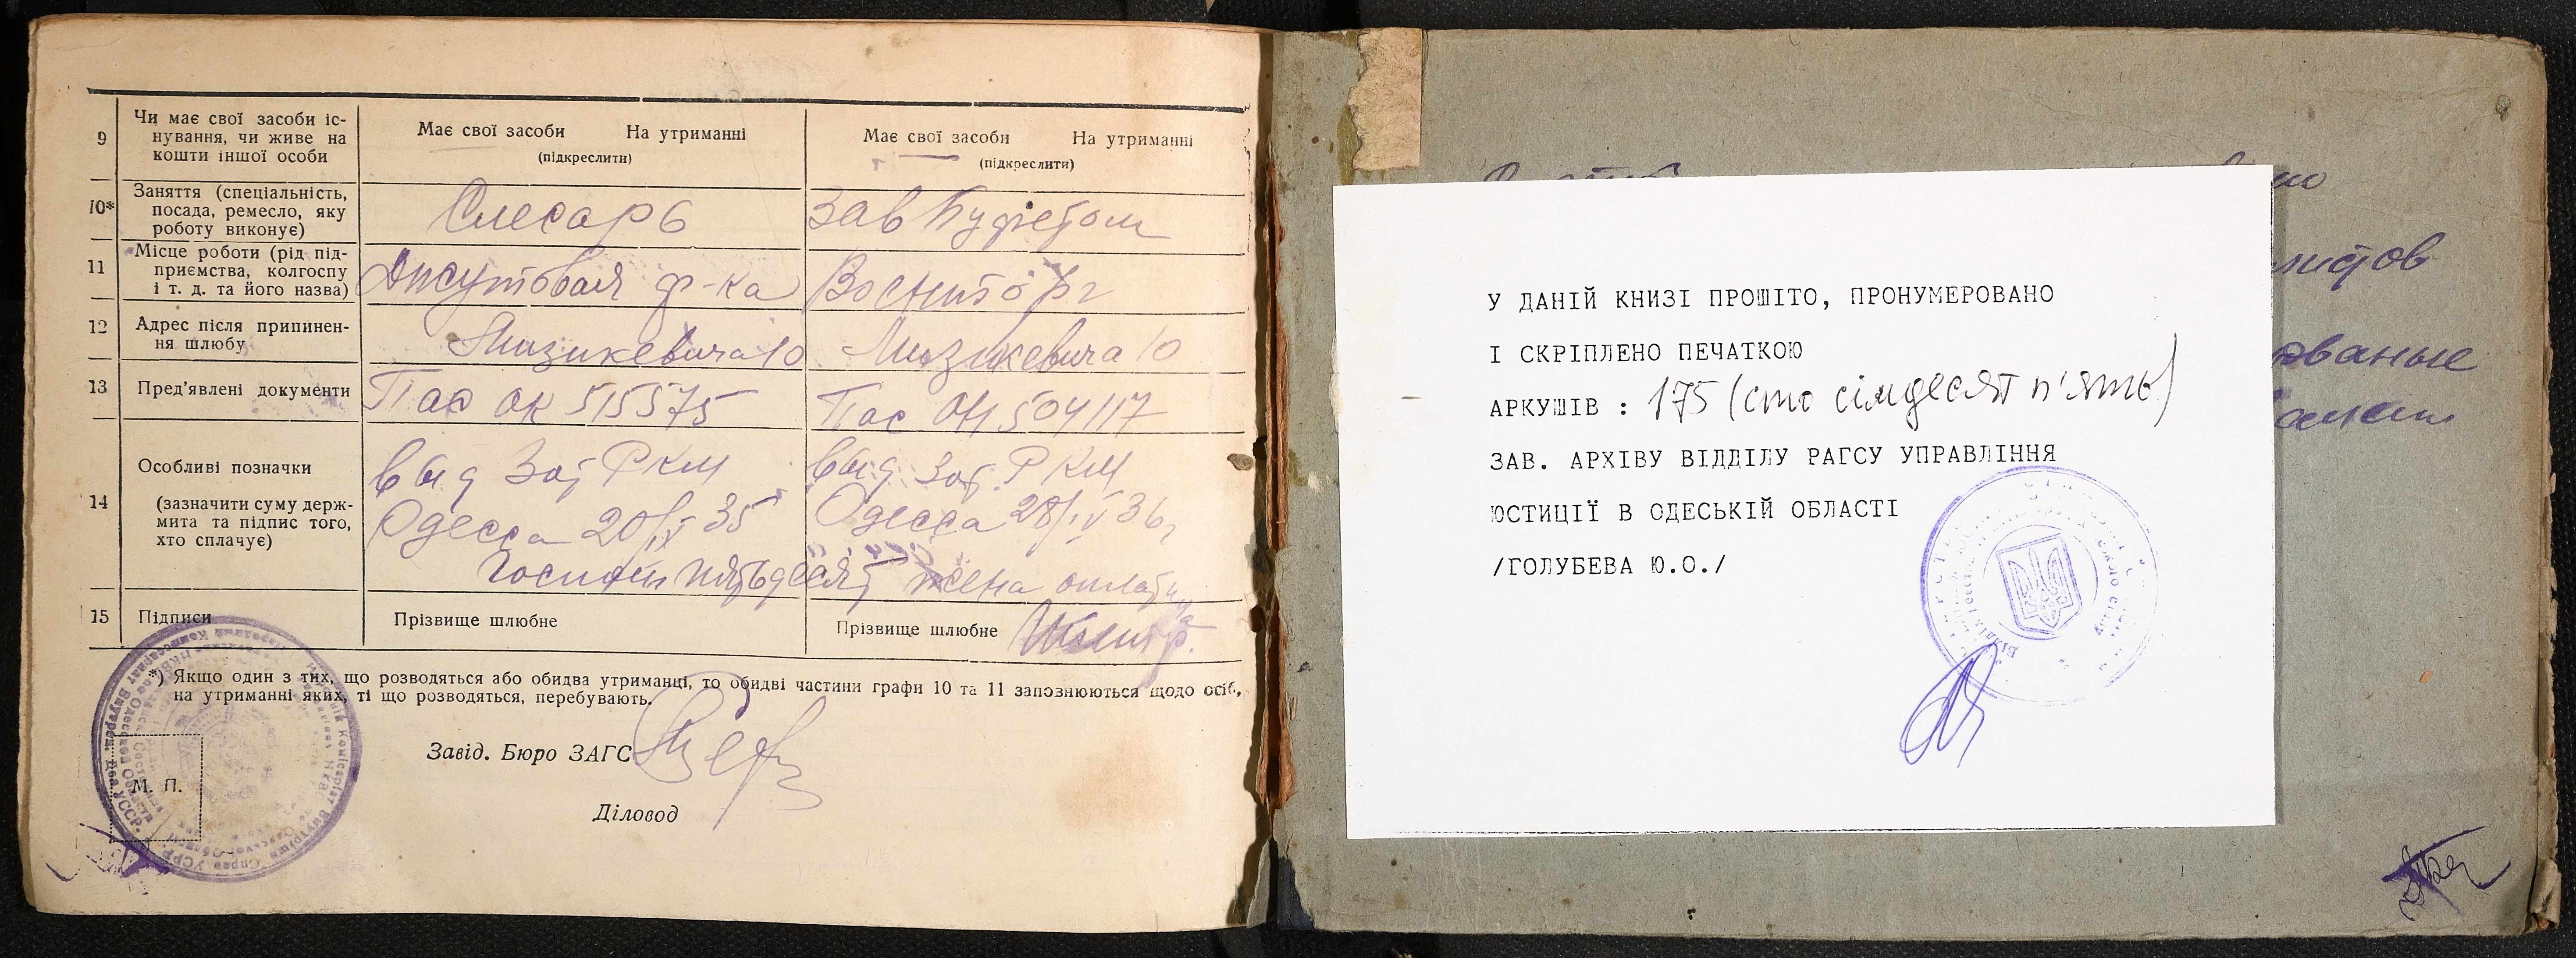 9
Чи має свої засоби іс-
нування, чи живе на
кошти іншої особи
Має свої засоби На утриманні
(підкреслити)
Має свої засоби На утриманні
(підкреслити)
10*
Заняття (спеціальність,
посада, ремесло, яку
роботу виконує)
Слесарь
Зав Буфетом
11
Місце роботи (рід під-
приємства, колгоспу
і т. д. та його назва)
Джутовая ф-ка
Военторг
12
Адрес після припинен-
ня шлюбу
Мизикевича 10
Мизикевича 10
13
Пред'явлені документи
Пас ОК 515575
Пас ОН 504117
14
Особливі позначки
(зазначити суму держ-
мита та підпис того,
хто сплачує)
выд Заг РКМ
Одесса 20/IV 35
выд Заг РКМ
Одесса 28/IV 36г
Госпош пятьдесят жена
15
Підписи
Прізвище шлюбне
Прізвище шлюбне
*) Якщо один з тих, що розводяться або обидва утриманці, то обидві частини графи 10 та 11 заповнюються щодо осіб,
на утриманні яких, ті що розводяться, перебувають.
Завід. Бюро ЗАГС
Діловод
М. П.
У ДАНІЙ КНИЗІ ПРОШІТО, ПРОНУМЕРОВАНО
І СКРІПЛЕНО ПЕЧАТКОЮ
АРКУШІВ : 175 (сто сімдесят п'ять)
ЗАВ. АРХІВУ ВІДДІЛУ РАГСУ УПРАВЛІННЯ
ЮСТИЦІЇ В ОДЕСЬКІЙ ОБЛАСТІ
/ГОЛУБЕВА Ю.О./